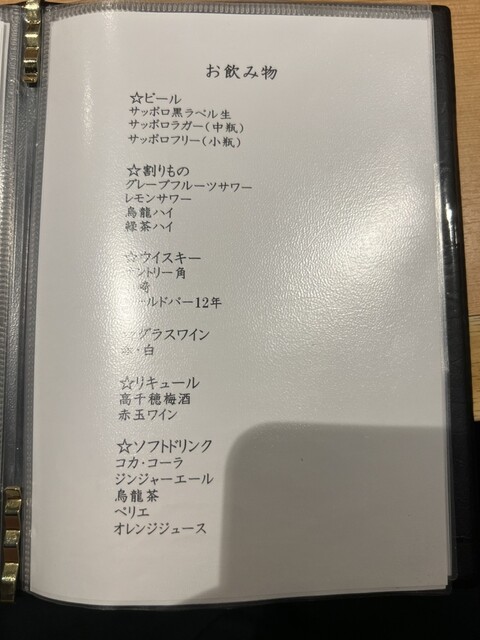 お飲み物
☆ビール
サッポロ黒ラベル生
サッポロラガー(中瓶)
サッポロフリー(小瓶)
☆割りもの
グレープフルーツサワー
レモンサワー
烏龍ハイ
緑茶ハイ
☆ウイスキー
ントリー角
崎
ールドパー12年
グラスワイン
・白
☆リキュール
高千穂梅酒
赤玉ワイン
☆ソフトドリンク
コカ・コーラ
ジンジャーエール
烏龍茶
ペリエ
オレンジジュース